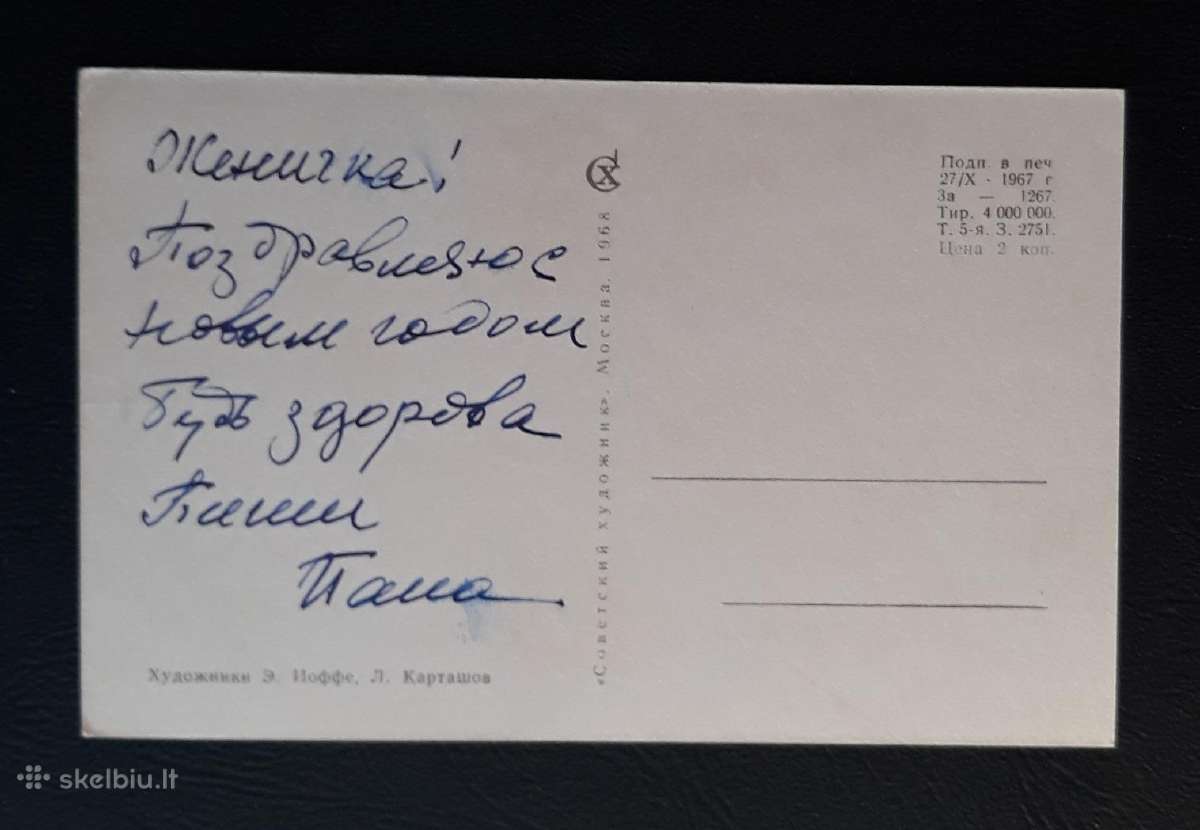 Женичка!
Поздравляю с
новым годом
Будь здорова
Пиши
Папа
Художники Э. Иоффе, Л. Карташов
«Советский художник». Москва. 1968
Подп. в печ
27/X - 1967 г
За — 1267.
Тир. 4 000 000.
Т. 5-я. З. 2751.
Цена 2 коп.
skelbiu.lt